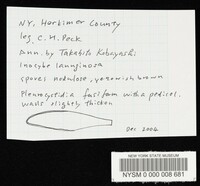 NY. Herkimer County
leg. C. H. Peck
ann. by Takahito Kobayashi
Inocybe lanuginosa
spores nodulose, yellowish brown
Pleurocystidia fusiform with a pedicel.
walls slightly thicken
Dec 2004
NEW YORK STATE MUSEUM
NYSM 0 000 008 681